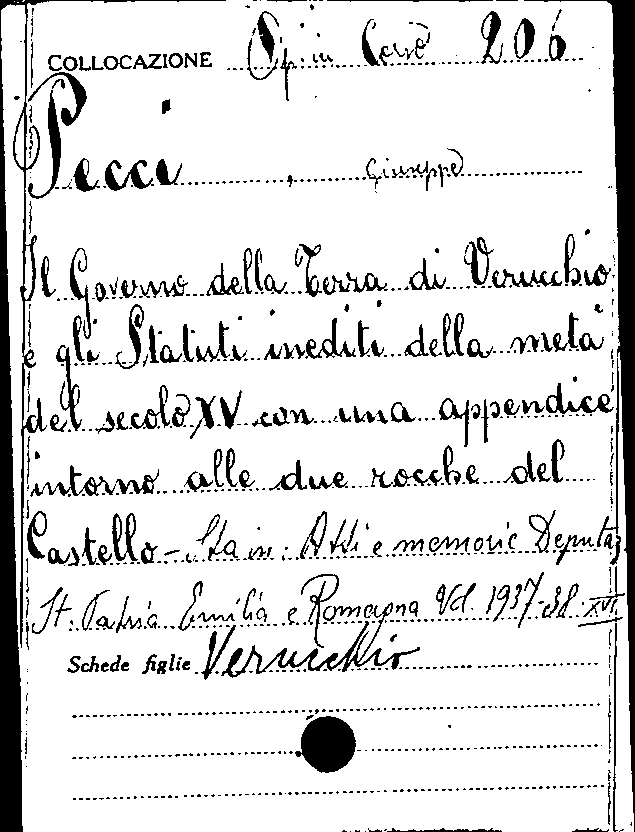 COLLOCAZIONE Op. in Corsè 206
Pecci, Giuseppe
Il Governo della Terra di Verucchio
e gli Statuti inediti della metà
del secolo XV con una appendice
intorno alle due rocche del
Castello – Sta in: Atti e memorie Deputaz
St. Patria Emilia e Romagna Vol. 1937-38-XVI
Schede figlie Verucchio